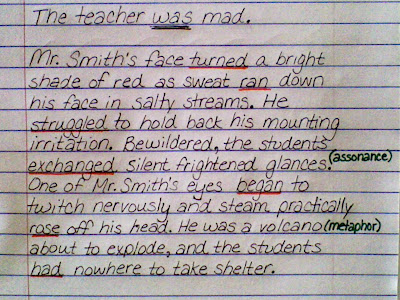 The teacher was mad.
Mr. Smith's face turned a bright
shade of red as sweat ran down
his face in salty streams. He
struggled to hold back his mounting
irritation. Bewildered, the students
exchanged silent frightened glances. (assonance)
One of Mr. Smith's eyes began to
twitch nervously and steam practically
rose off his head. He was a volcano (metaphor)
about to explode, and the students
had nowhere to take shelter.